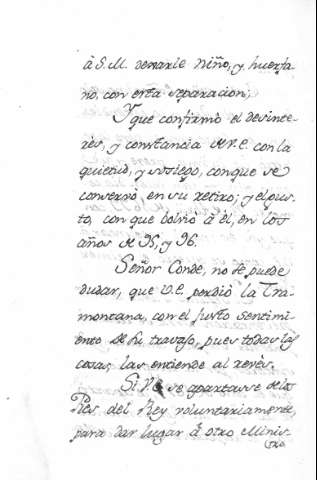 à S.M. dexarle Niño, y huerfa-
no, con esta separacion;
Y que confirmò el desinte-
rès, y constancia de V.E. con la
quietud, y sosiego, con que se
conservò, en su retiro; y el gus-
to, con que bolviò à èl, en los
años de 95, y 96.
Señor Conde, no se puede
dudar, que V.E. perdiò la Tra-
montana, con el justo sentimi-
ento de su travajo, pues todas las
cosas, las entiende al revès.
Si V.E. se apartasse de los
Pies del Rey voluntariamente,
para dar lugar à otro Minis-
tro